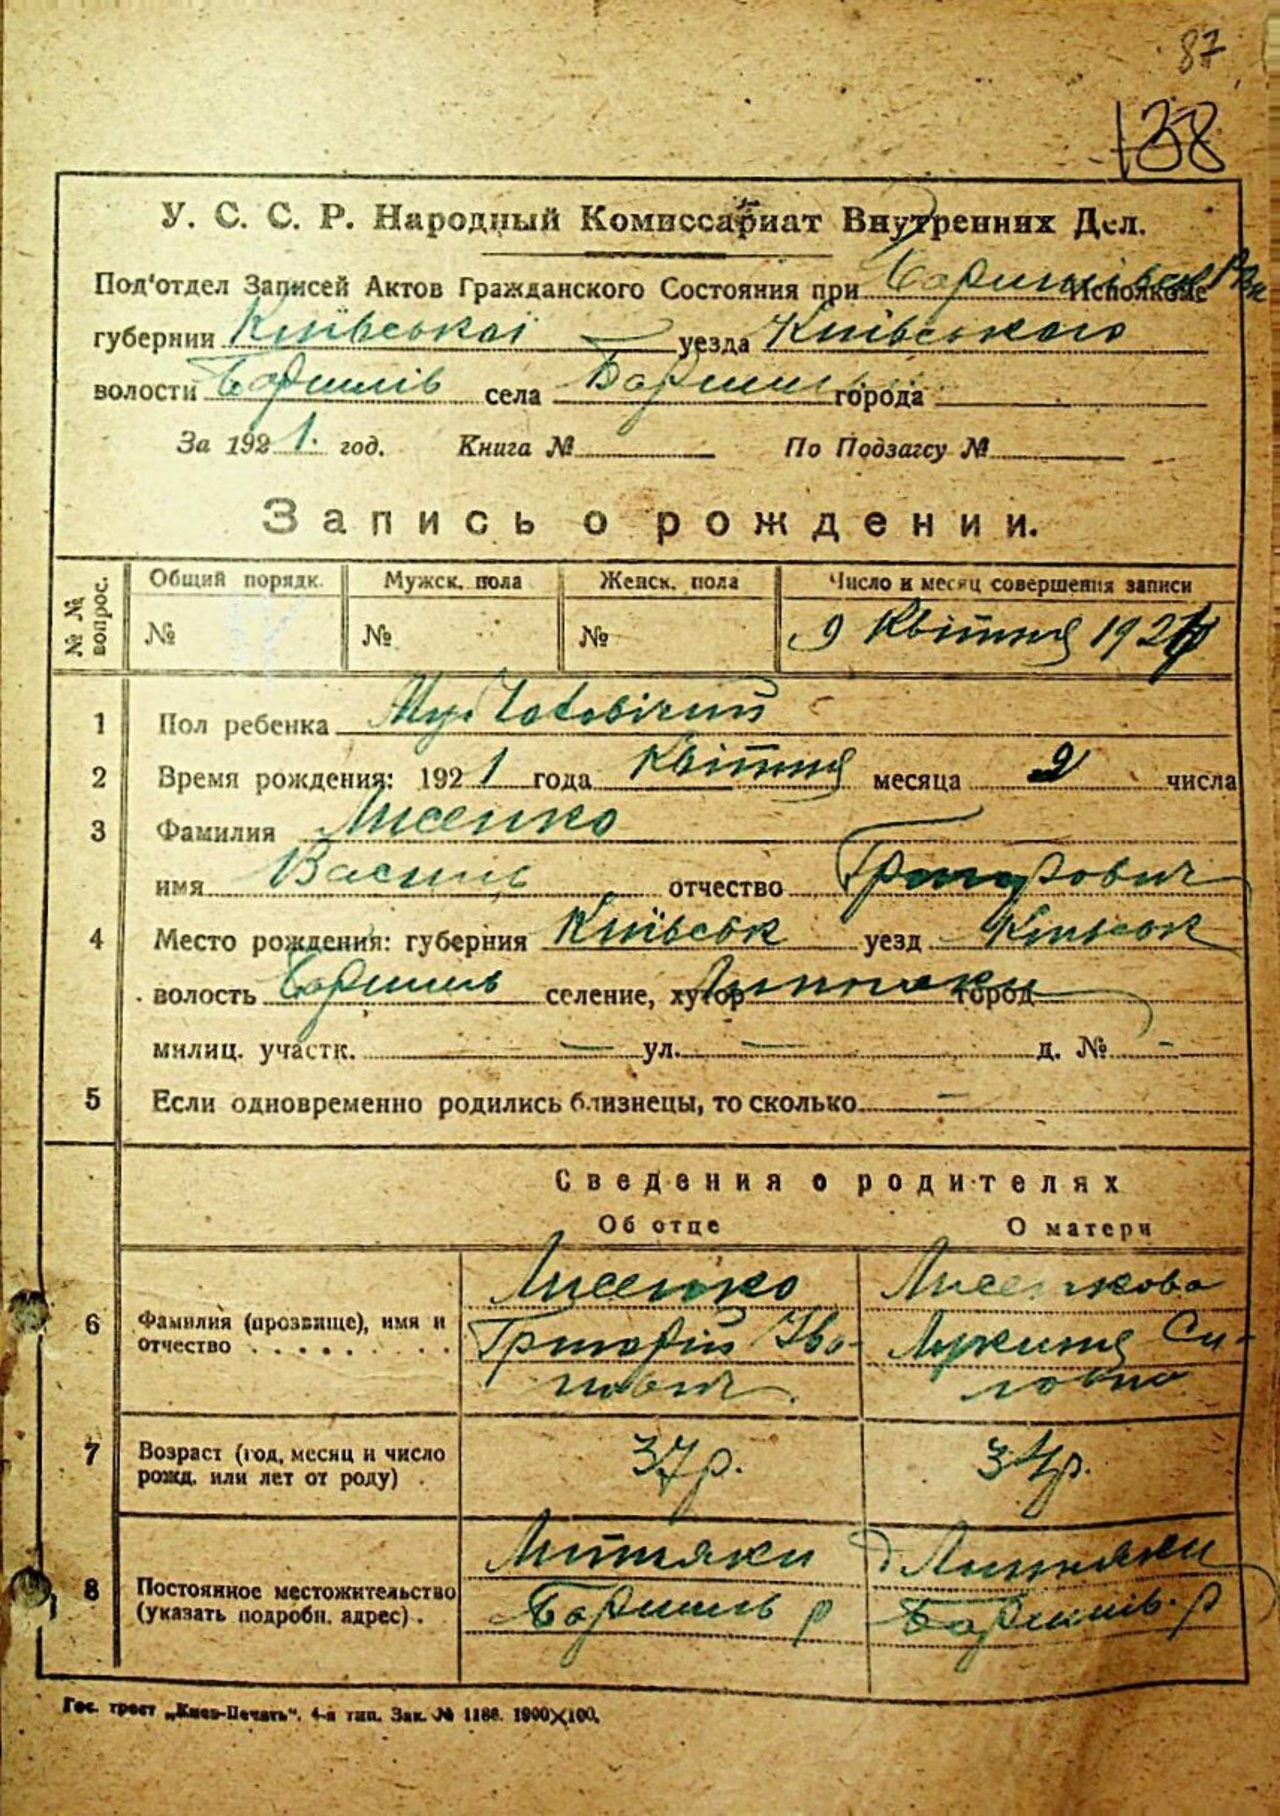 87
138
У. С. С. Р. Народный Комиссариат Внутренних Дел.
Под'отдел Записей Актов Гражданского Состояния при Исполкоме
губернии Київської уезда Київського
волости Баришів села Баришів города
За 1921. год. Книга № По Подзагсу №
Запись о рождении.
№ № вопрос.
Общий порядк. Мужск. пола Женск. пола Число и месяц совершения записи
№ № № 9 Квітня 192
1 Пол ребенка
2 Время рождения: 1921 года Квітня месяца 2 числа
3 Фамилия Лисенко
имя Василь отчество Григорович
4 Место рождения: губерния Київськ уезд Київськ
волость Баришів селение, хутор город
милиц. участк. — ул. — д. № —
5 Если одновременно родились близнецы, то сколько —
Сведения о родителях
Об отце О матери
6 Фамилия (прозвище), имя и отчество
Лисенко Лисенкова
Григорій Іва- Лукина Си-
нович ловна
7 Возраст (год, месяц и число рожд. или лет от роду)
37 р. 34 р.
8 Постоянное местожительство (указать подробн. адрес).
Баришів р Баришів. р
Гос. трест „Киев-Печать“. 4-я тип. Зак. № 1186. 1900×100.